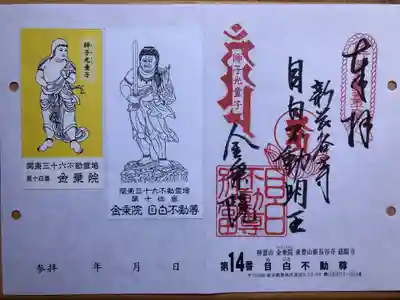 獅子光童子
関東三十六不動霊場
第十四番 金乗院
関東三十六不動霊場
第十四番
金乗院 目白不動尊
奉拝
新長谷寺
目白不動明王
獅子光童子
金乗院
参拝 年 月 日
神霊山 金乗院 東豊山新長谷寺
第14番 目白不動尊